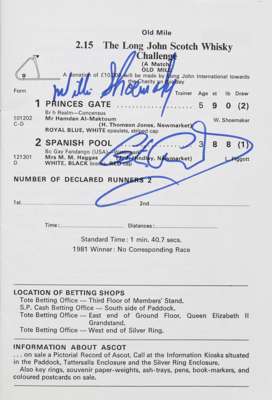 Old Mile
2.15 The Long John Scotch Whisky
Challenge
(A Match)
OLD MILE
A donation of £10,000 will be made by Long John International towards
the Charity on the day
Form Trainer Age st lb
Willie Shoemaker
1 PRINCES GATE 5 9 0 (2)
101202 Br h Realm—Concensus
C-D Mr Hamdan Al-Maktoum W. Shoemaker
(H. Thomson Jones, Newmarket)
ROYAL BLUE, WHITE epaulets, striped cap
2 SPANISH POOL 3 8 8 (1)
Bc Gay Fandango (USA)
121301 Mrs M. M. Haggas Hindley, Newmarket) L. Piggott
D WHITE, BLACK RED cap
NUMBER OF DECLARED RUNNERS 2
1st 2nd
Time: Distances:
Standard Time: 1 min. 40.7 secs.
1981 Winner: No Corresponding Race
LOCATION OF BETTING SHOPS
Tote Betting Office — Third Floor of Members' Stand.
S.P. Cash Betting Office — South side of Paddock.
Tote Betting Office — East end of Ground Floor, Queen Elizabeth II
Grandstand.
Tote Betting Office — West end of Silver Ring.
INFORMATION ABOUT ASCOT
... on sale a Pictorial Record of Ascot, Call at the Information Kiosks situated
in the Paddock, Tattersalls Enclosure and the Silver Ring Enclosure.
Also key rings, souvenir paper-weights, ash-trays, pens, book-markers, and
coloured postcards on sale.